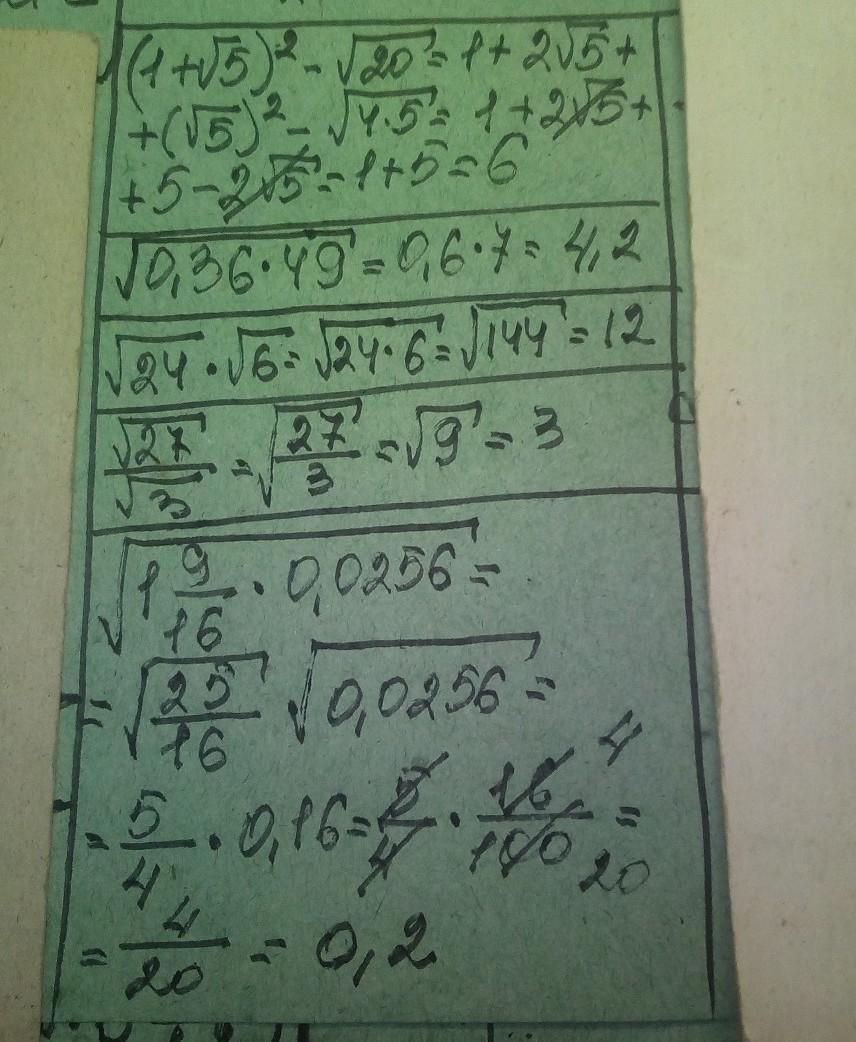 (1+√5)² - √20 = 1 + 2√5 +
+(√5)² - √4·5 = 1 + 2√5 +
+ 5 - 2√5 = 1 + 5 = 6
√0,36·49 = 0,6·7 = 4,2
√24 · √6 = √24·6 = √144 = 12
√27/√3 = √27/3 = √9 = 3
√1 9/16 · 0,0256 =
= √25/16 √0,0256 =
= 5/4 · 0,16 = 5/4 · 16/100 = 4 20
= 4/20 = 0,2